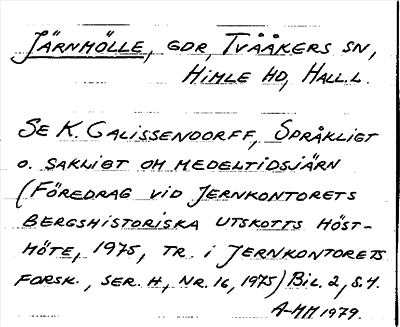 JÄRNMÖLLE, GDR, TVÅÅKERS SN,
HIMLE HD, HALL.L.
SE K. GALISSENDORFF, SPRÅKLIGT
O. SAKLIGT OM MEDELTIDSJÄRN
(FÖREDRAG VID JERNKONTORETS
BERGSHISTORISKA UTSKOTTS HÖST-
MÖTE, 1975, TR. I JERNKONTORETS
FORSK., SER. H, NR. 16, 1975) BIL. 2, S. 4.
A-MH 1979.